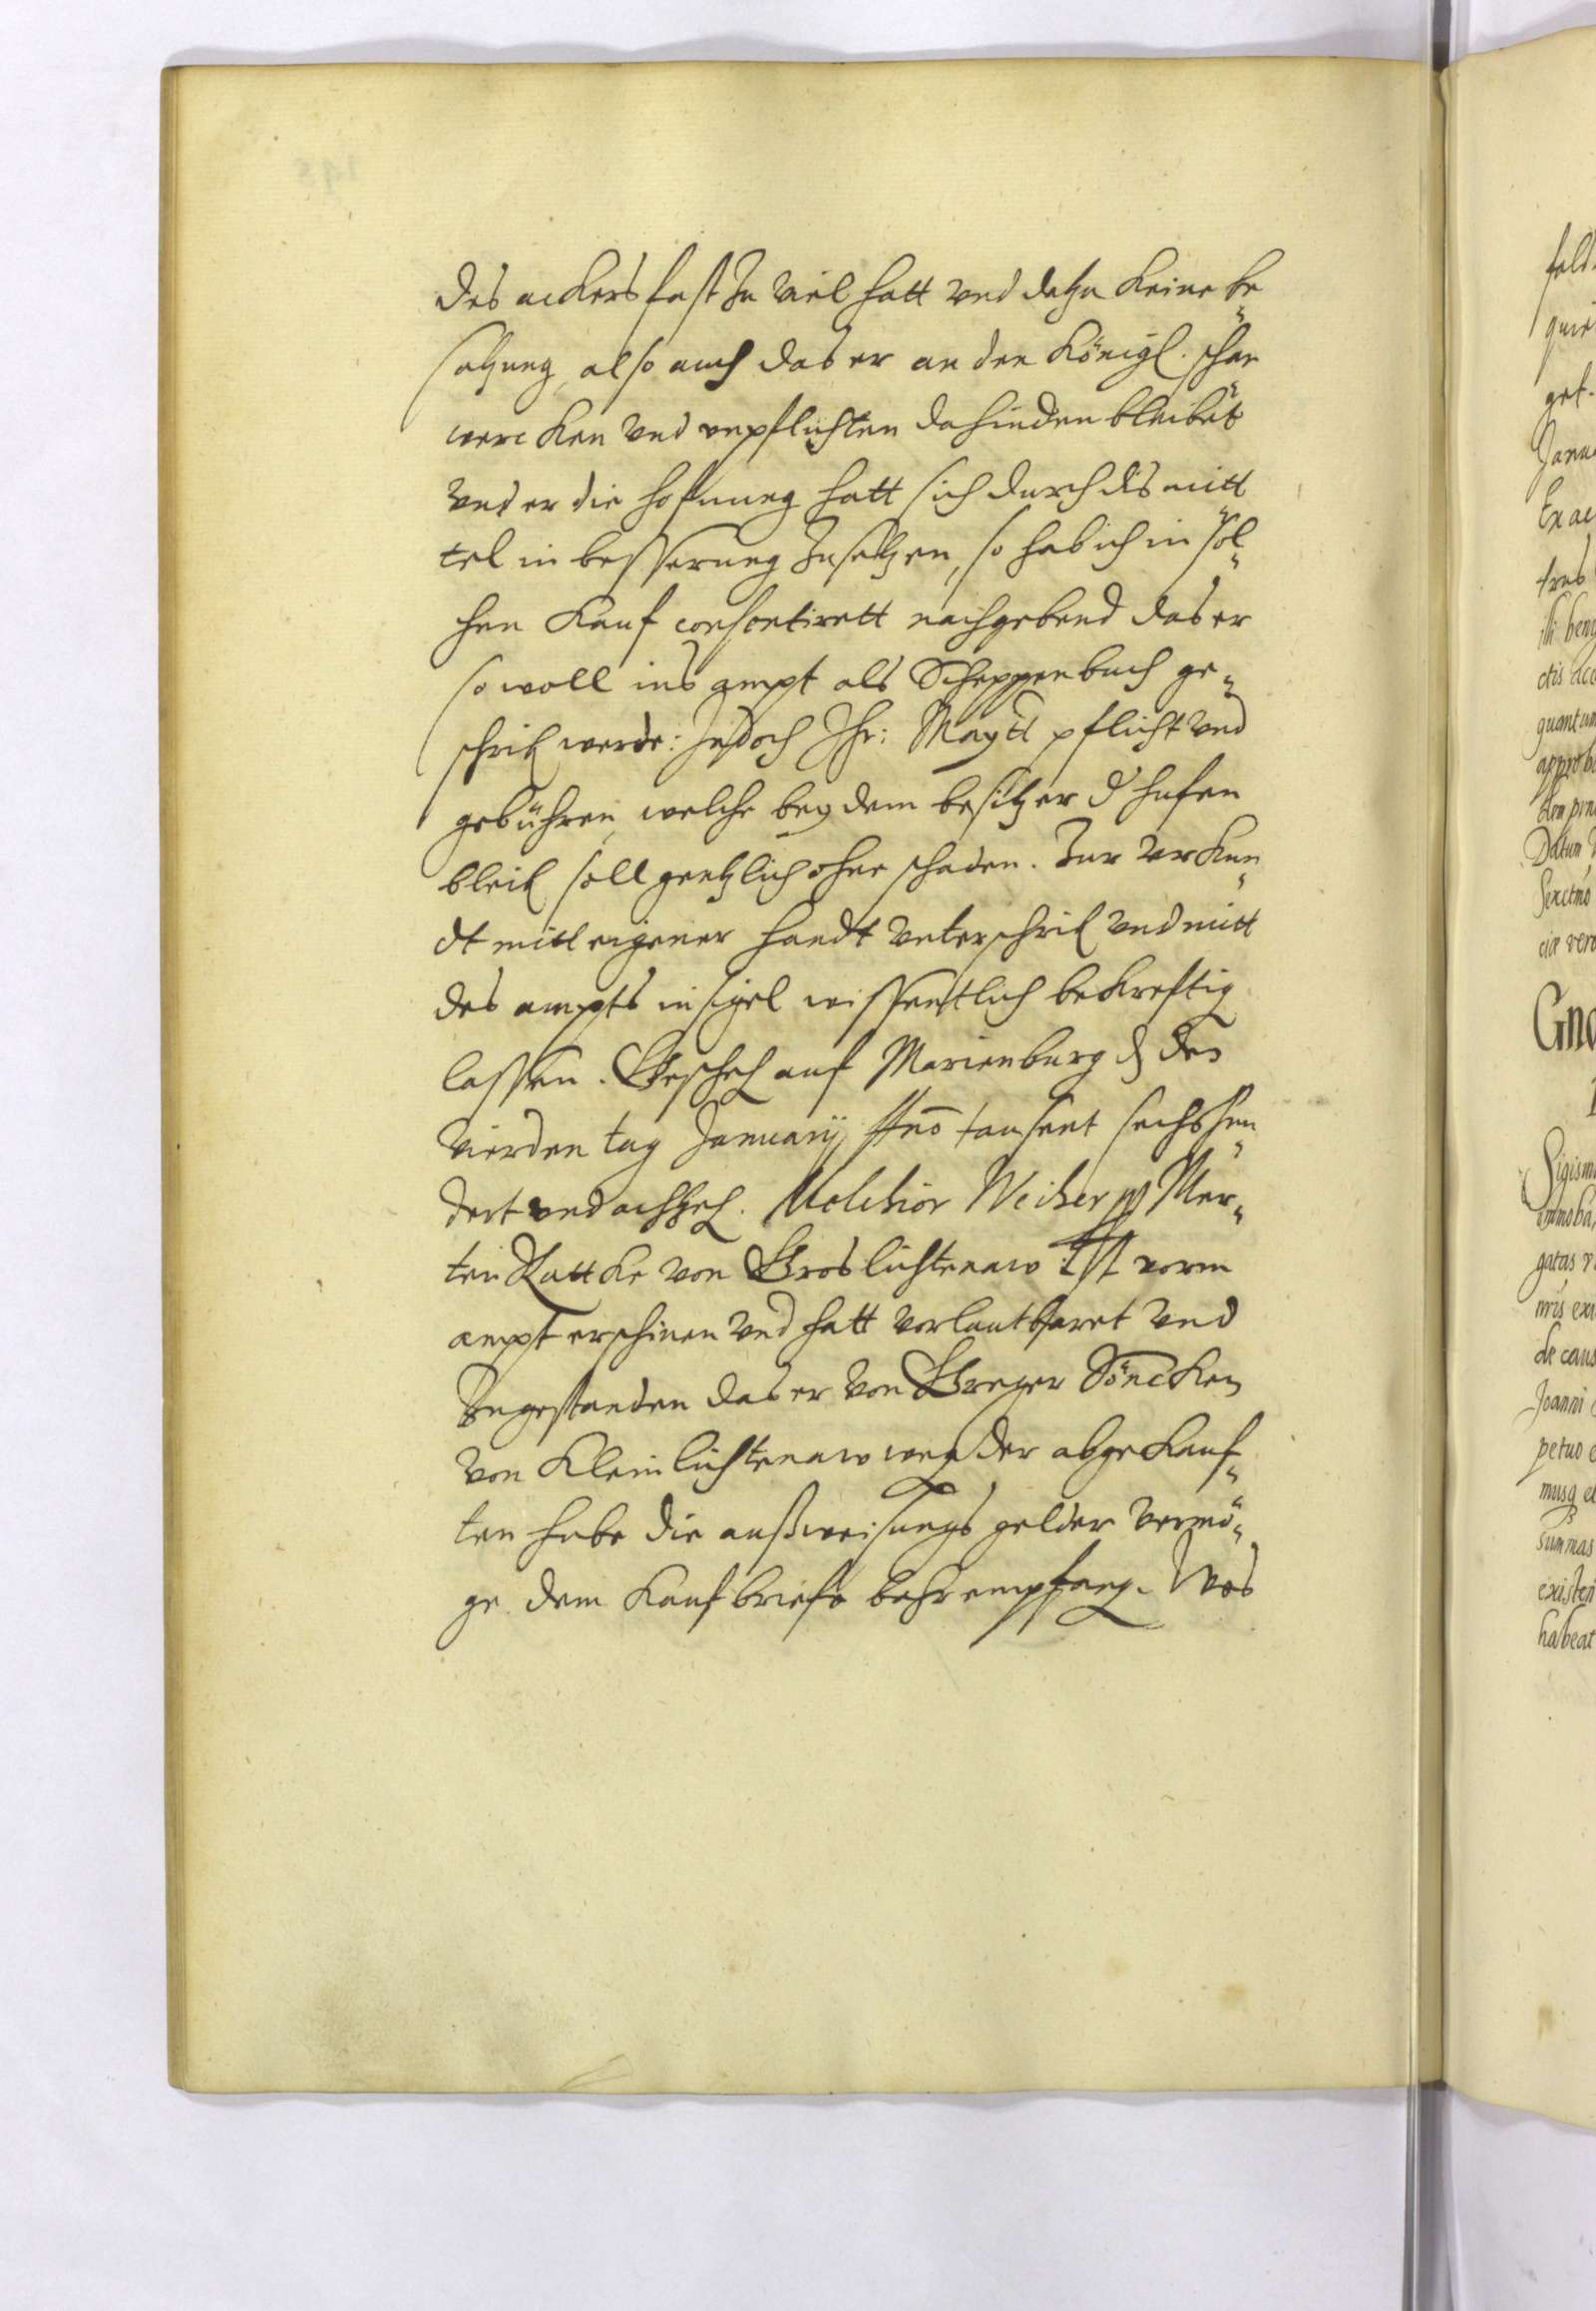 des ackers fast zu viel hatt vnd dazu keine be-
satzung, also auch das er an den Königl. schar-
wercken vnd vnpflichten dahinden bleibet
vnd er die hofnung hatt sich durch dis mitt-
tel in besserung zusetzen, so hab ich in sol-
chen Kauf consentirett nachgebend das er
so woll ins ampt als Scheppenbuch ge-
schrib werde: jedoch Ihr: Maytt pflicht vnd
gebühren, welche bey dem besitzer d' hufen
bleib soll gentzlich ohne schaden. Zur Vrkun-
dt mitt eigener handt vnterschrib vnd mitt
des ampts insigel wissentlich bekreftig
lassen. Gescheh auf Marienburg d den
vierden tag January Anno tausent sechshun-
dert vnd achtzeh. Melchior Weiher mp Mer-
ten Rattke von Groslichtenaw Ist vorm
ampt erschinen vnd hatt verlautbaret vnd
Zugestanden das er von Greger Söncken
von Kleinlichtenaw weg der abgekauf-
ten hube die außweisungs gelder vermö-
ge dem Kaufbriefe behr empfang. Was
feld.
que
get.
Janu
Ex ac
tres
illi beni
ctis acc
quantum
approba
Datum
ciæ vero
Gno
Sigism
gatas v
nris exi
de caus
Joanni
petuo e
musq et
summas
existen
habeat